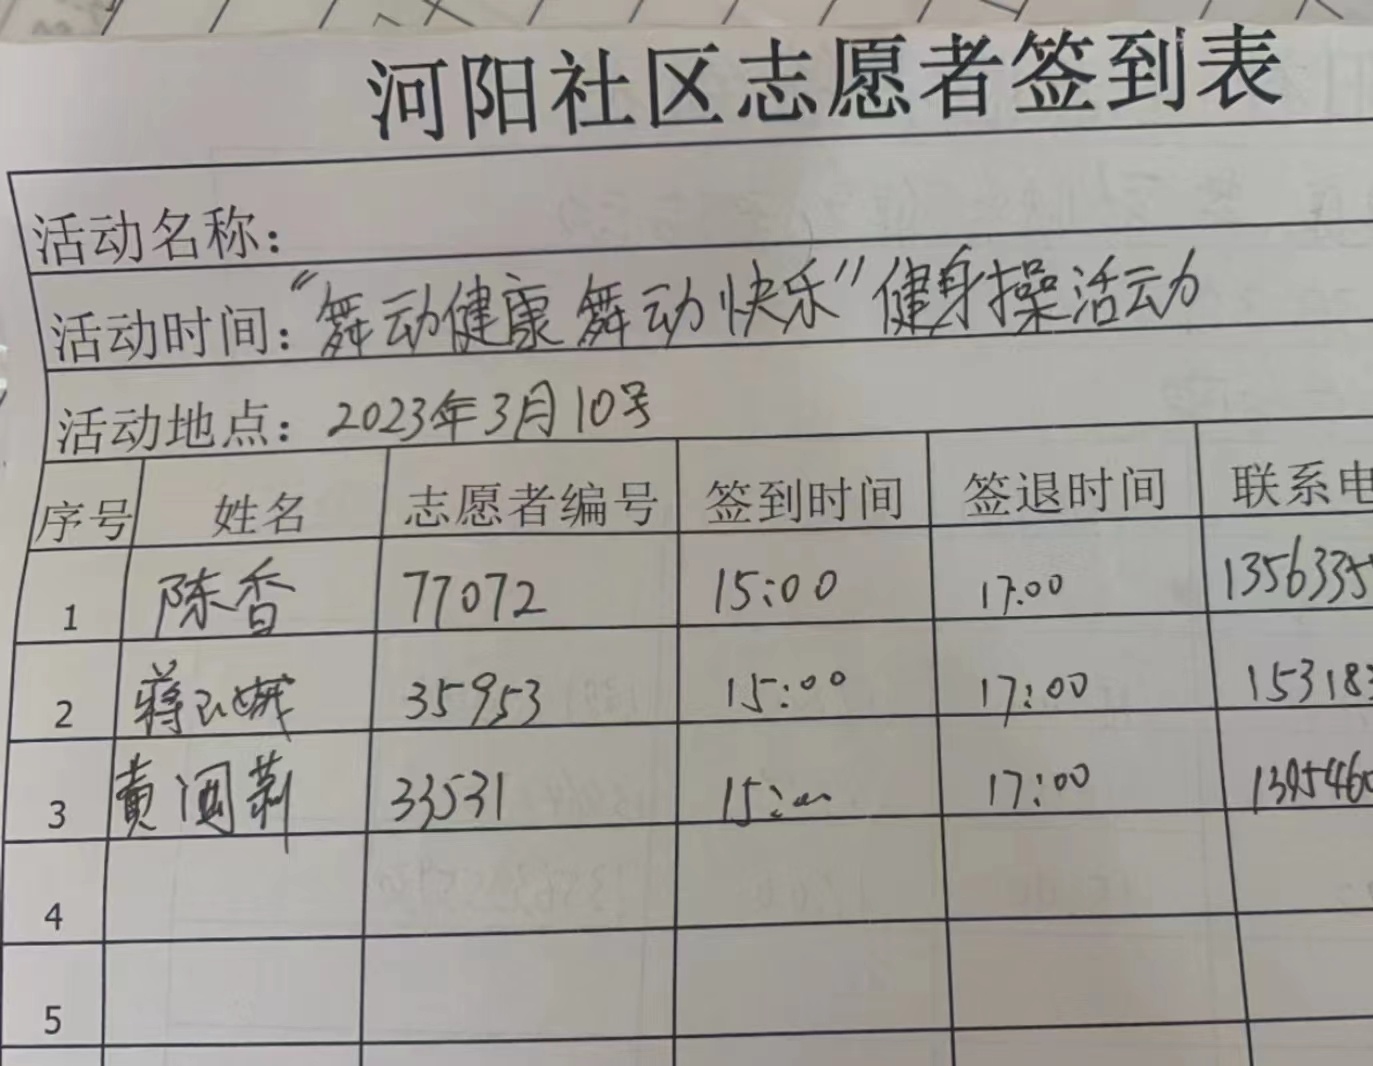 河阳社区志愿者签到表
活动名称：
活动时间："舞动健康 舞动快乐"健身操活动
活动地点：2023年3月10号
序号 姓名 志愿者编号 签到时间 签退时间 联系电
1 陈香 77072 15:00 17:00 1356335
2 蒋 35953 15:00 17:00 153183
3 黄 莉 33531 15: 17:00 1395460
4
5